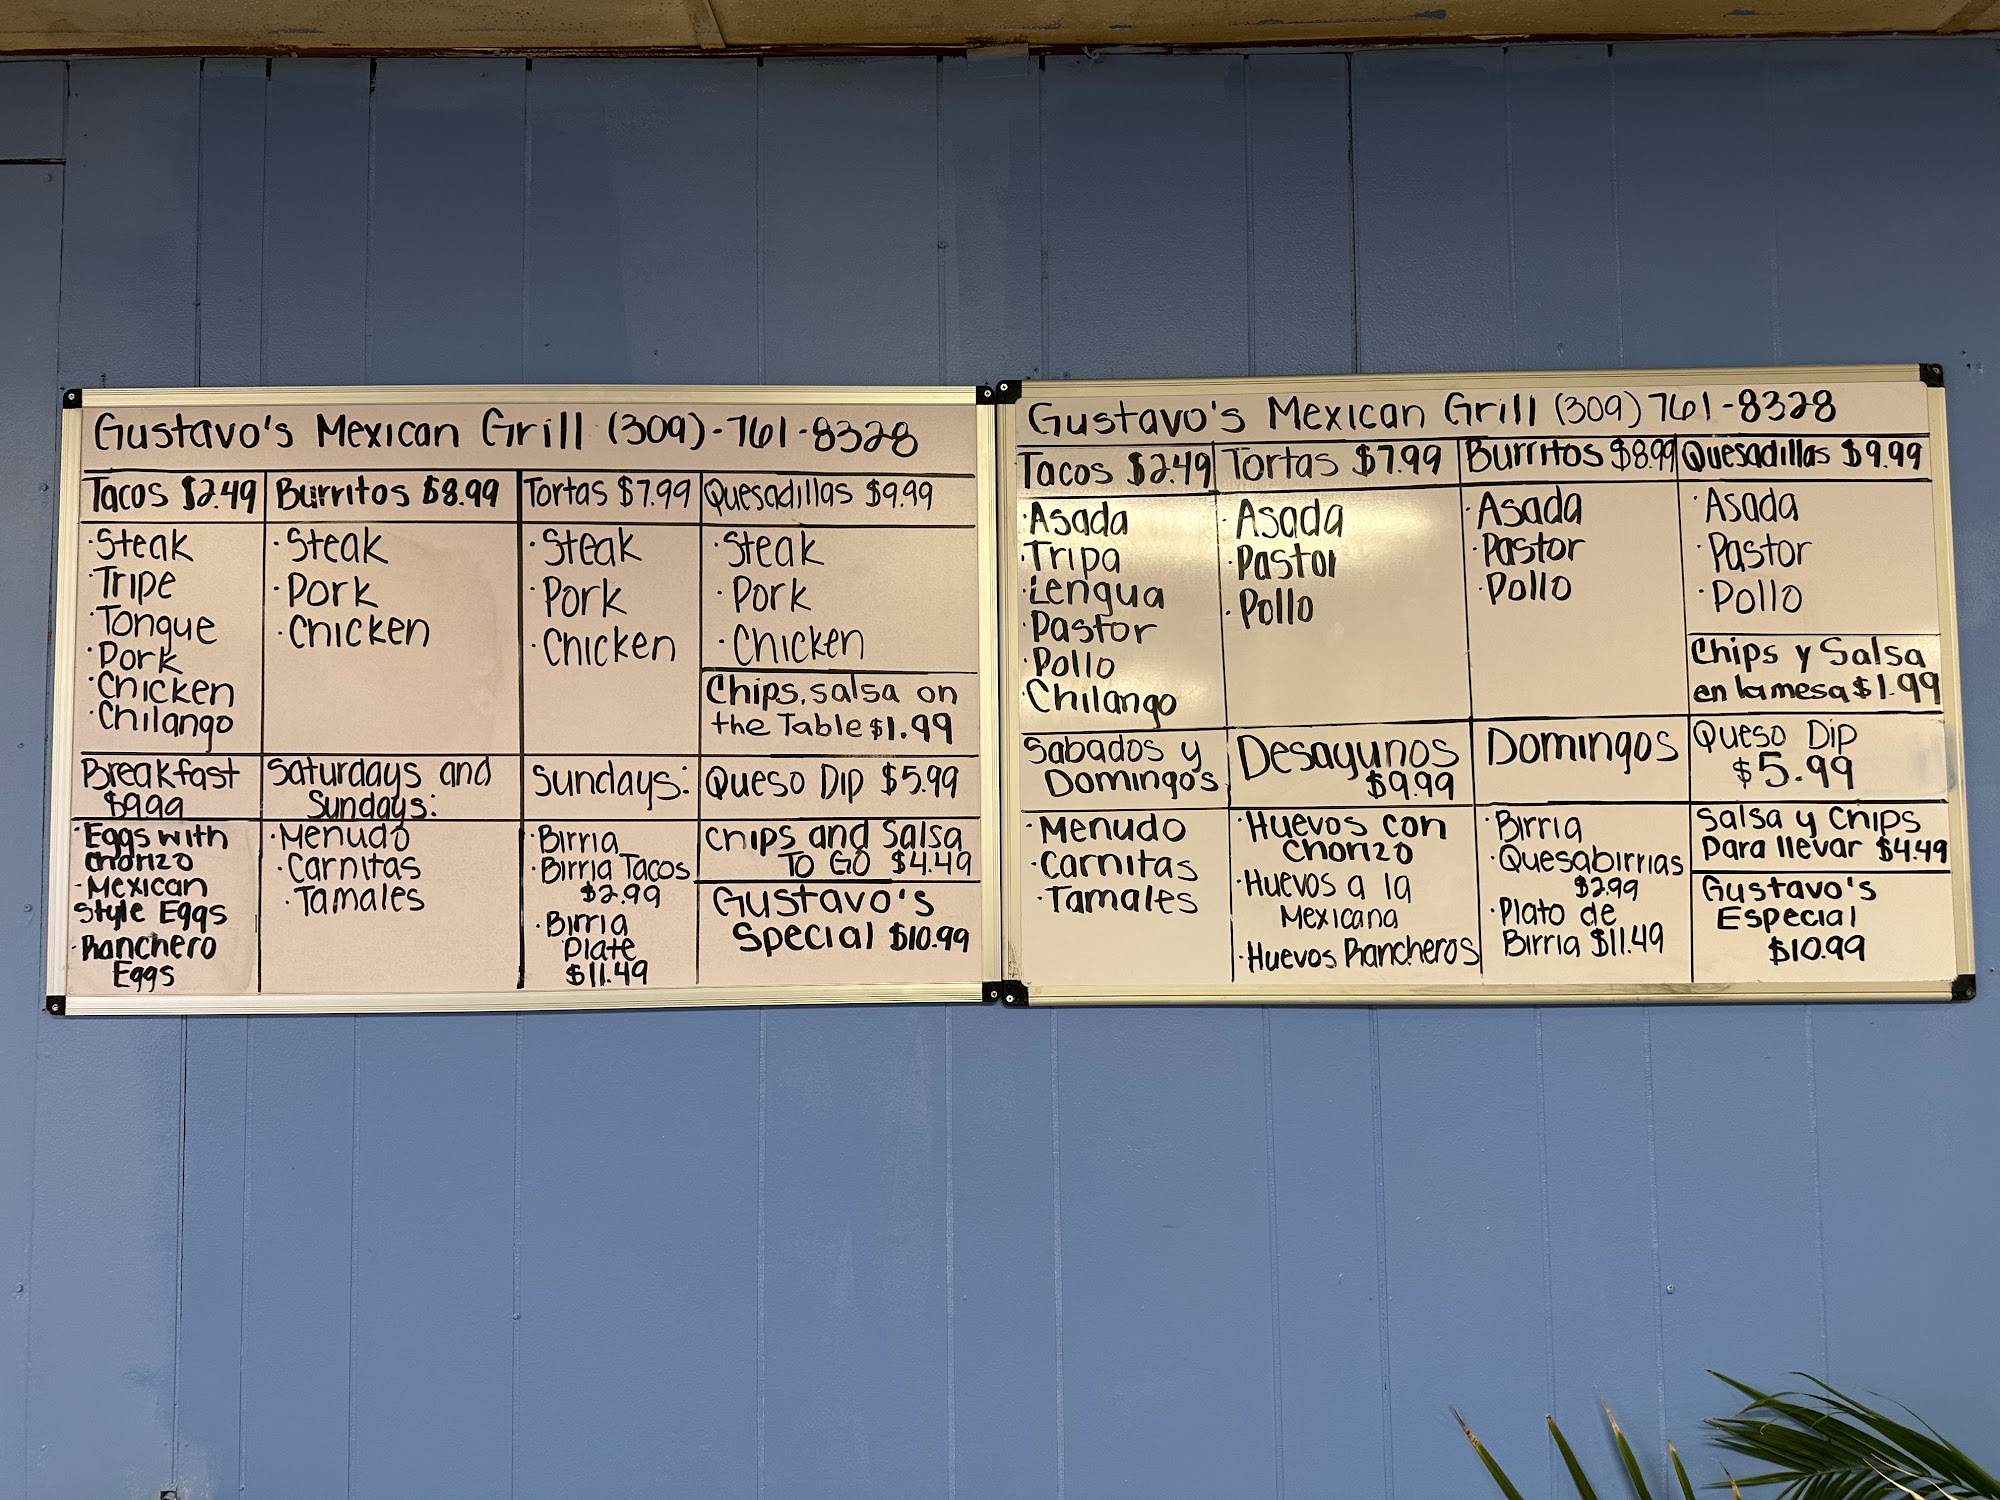 Gustavo's Mexican Grill (309)-761-8328
Tacos $2.49
·Steak
·Tripe
·Tongue
·Pork
·Chicken
·Chilango
Burritos $8.99
·Steak
·Pork
·Chicken
Tortas $7.99
·Steak
·Pork
·Chicken
Quesadillas $9.99
·Steak
·Pork
·Chicken
Chips, salsa on
the Table $1.99
Breakfast
$9.99
·Eggs with
chorizo
·Mexican
Style Eggs
·Ranchero
Eggs
Saturdays and
Sundays:
·Menudo
·Carnitas
·Tamales
Sundays:
·Birria
·Birria Tacos
$2.99
·Birria
Plate
$11.49
Queso Dip $5.99
Chips and Salsa
To Go $4.49
Gustavo's
Special $10.99
Gustavo's Mexican Grill (309) 761-8328
Tacos $2.49
·Asada
·Tripa
·Lengua
·Pastor
·Pollo
·Chilango
Tortas $7.99
·Asada
·Pastor
·Pollo
Burritos $8.99
·Asada
·Pastor
·Pollo
Quesadillas $9.99
·Asada
·Pastor
·Pollo
Chips y Salsa
en la mesa $1.99
Sabados y
Domingos
·Menudo
·Carnitas
·Tamales
Desayunos
$9.99
·Huevos con
Chorizo
·Huevos a la
Mexicana
·Huevos Rancheros
Domingos
·Birria
·Quesabirrias
$2.99
·Plato de
Birria $11.49
Queso Dip
$5.99
Salsa y Chips
Para llevar $4.49
Gustavo's
Especial
$10.99